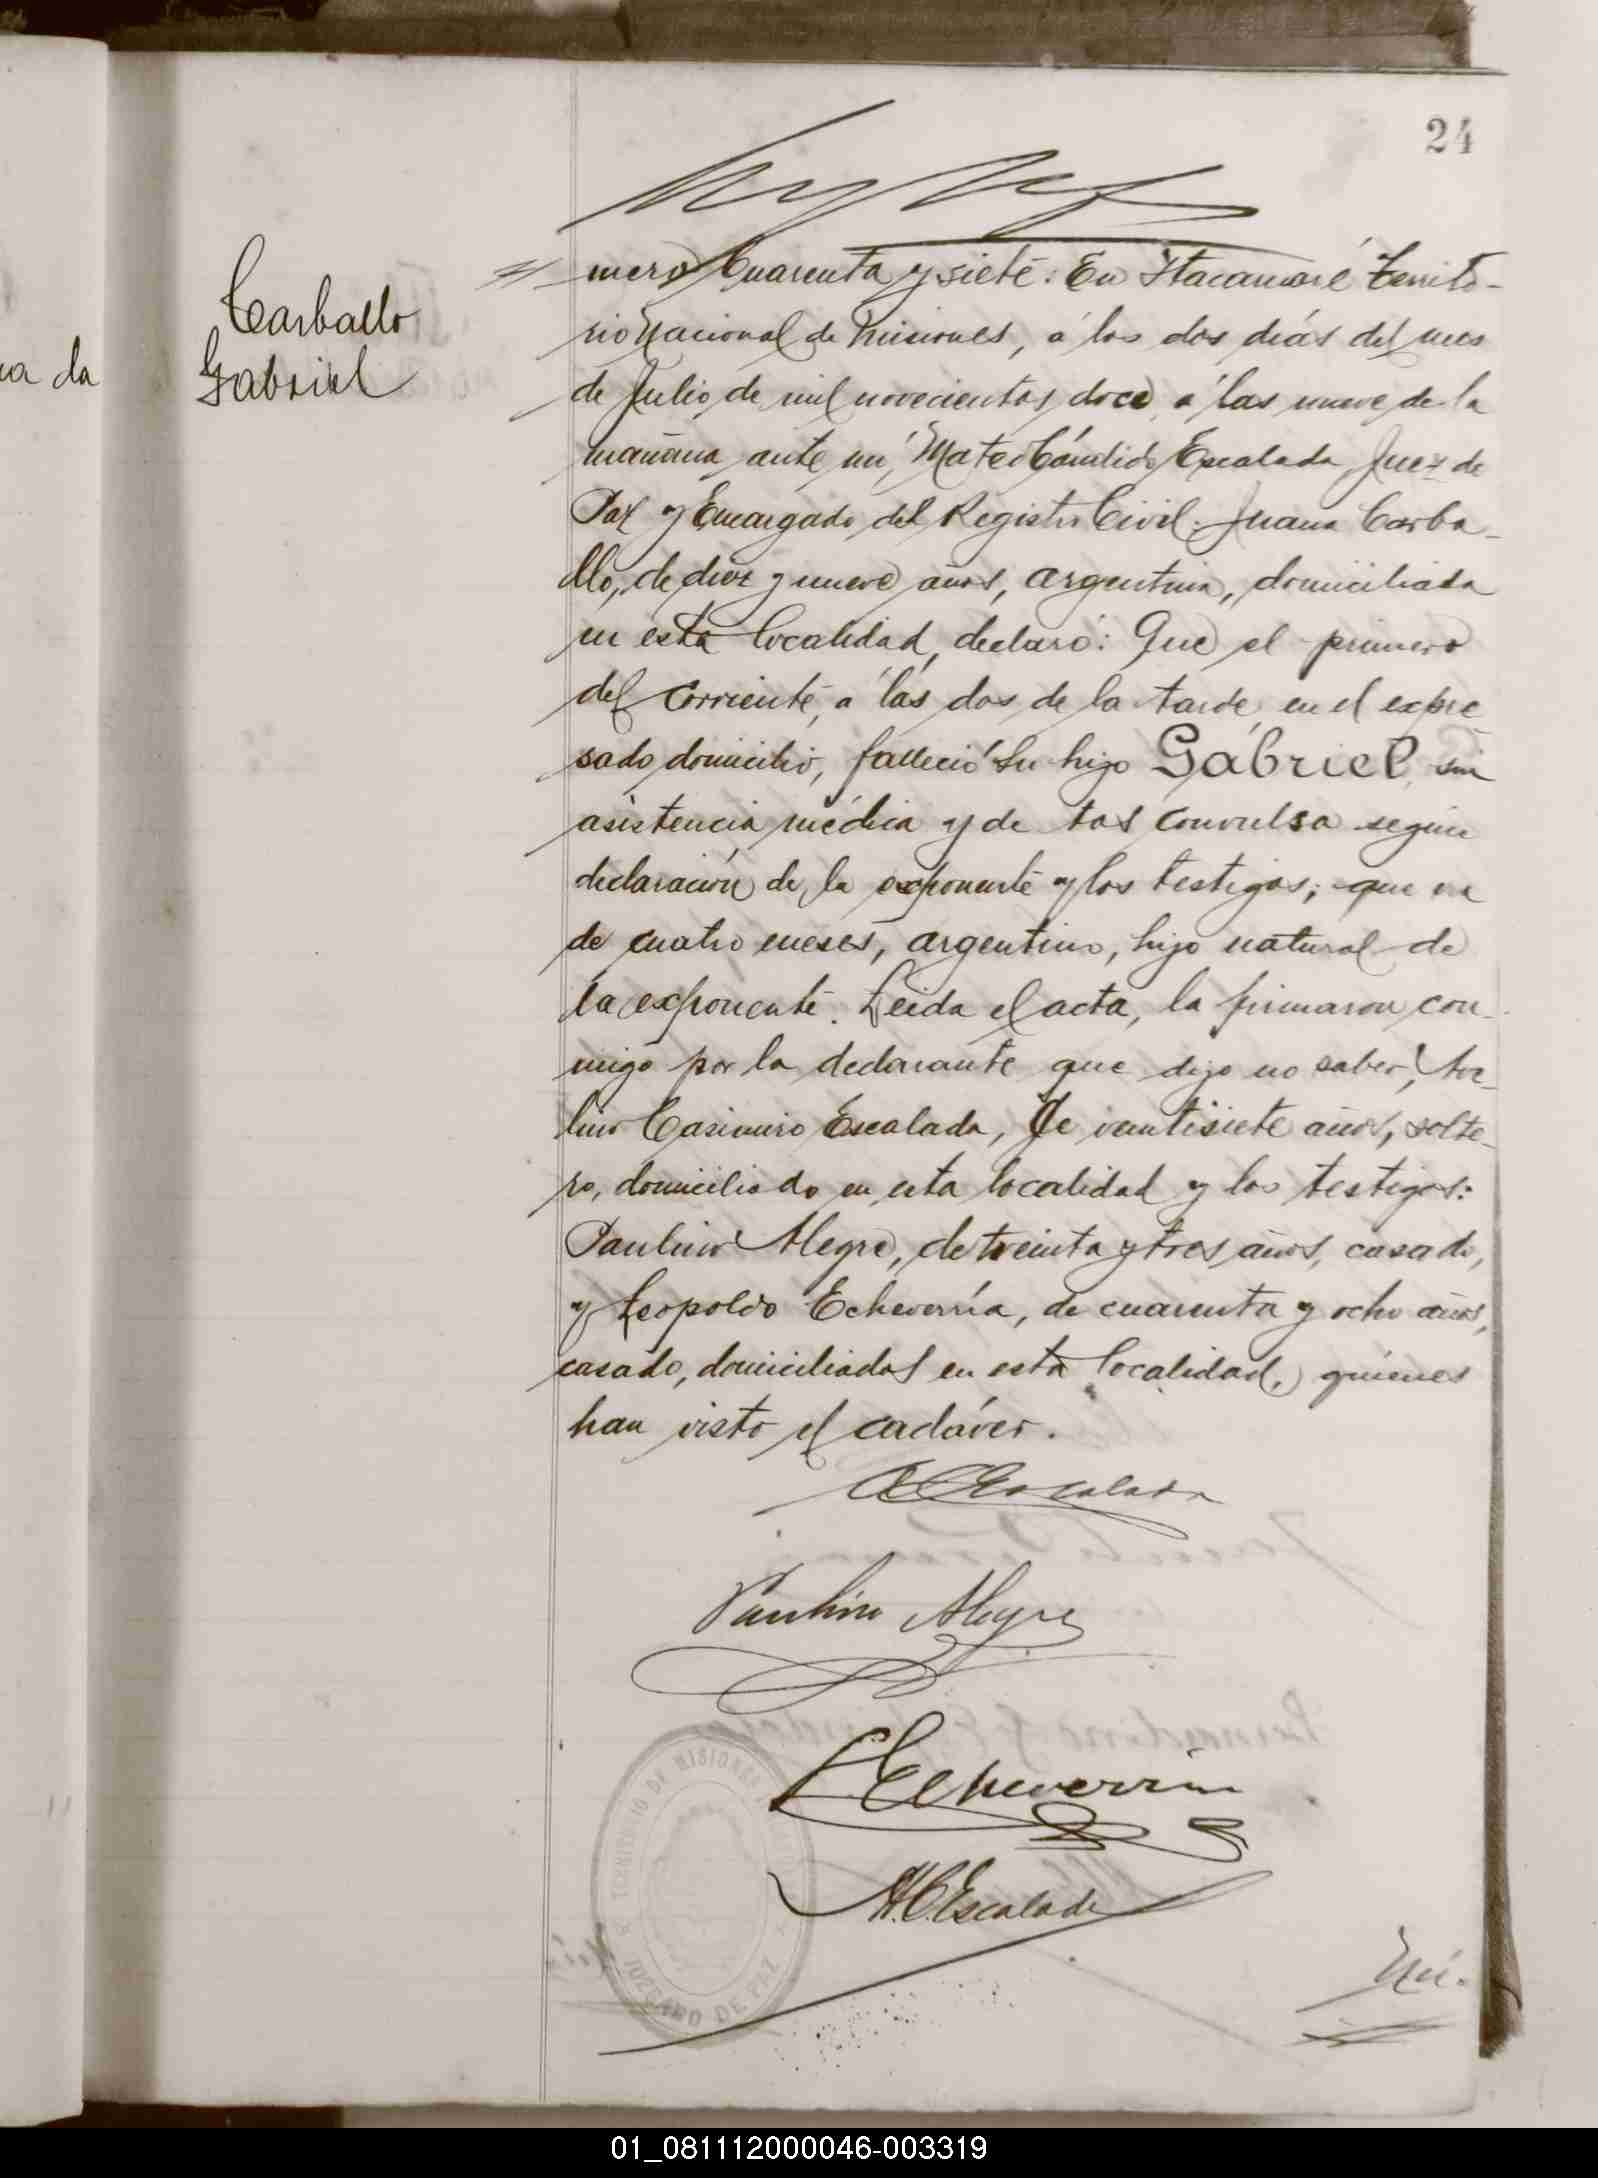 24
mero Cuarenta y siete: En Itacaruaré Territo-
rio Nacional de Misiones, á los dos días del mes
de Julio, de mil novecientos doce, á las nueve de la
mañana, ante mí, Mateo Cándido Escalada Juez de
Paz y Encargado del Registro Civil. Juana Carba-
llo, de diez y nueve años, argentina, domiciliada
en esta localidad, declaró: Que el primero
del corriente, á las dos de la tarde, en el expre
sado domicilio, falleció su hijo Gabriel, sin
asistencia médica y de tos convulsa según
declaración de la exponente y los testigos; que era
de cuatro meses, argentino, hijo natural de
la exponente. Leida el acta, la firmaron con-
migo por la declarante que dijo no saber,
Casimiro Escalada, de veintisiete años, solte-
ro, domiciliado en esta localidad y los testigos:
Paulino Alegre, de treinta y tres años, casado,
y Leopoldo Echeverría, de cuarenta y ocho años,
casado, domiciliados en esta localidad, quienes
han visto el cadáver.
Carballo
Gabriel
na da
Escalada
Paulino Alegre
L Echeverria
M.C. Escalada
TERRITORIO DE MISIONES
JUZGADO DE PAZ
Nú-
01_081112000046-003319